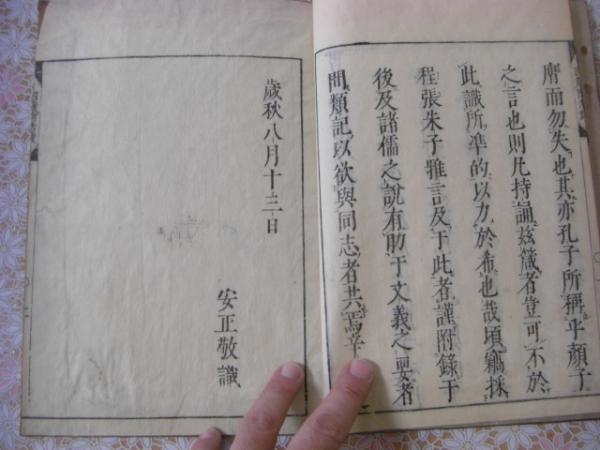 膺而勿失也其亦孔子所稱乎顏子
之言也則凡持誦玆箴者豈可不於
此識所準的以力於希也哉頃竊採
程張朱子雅言及于此者謹附錄于
後及諸儒之說有助于文義之要者
間類記以欲與同志者共焉辛
歲秋八月十三日
安正敬識